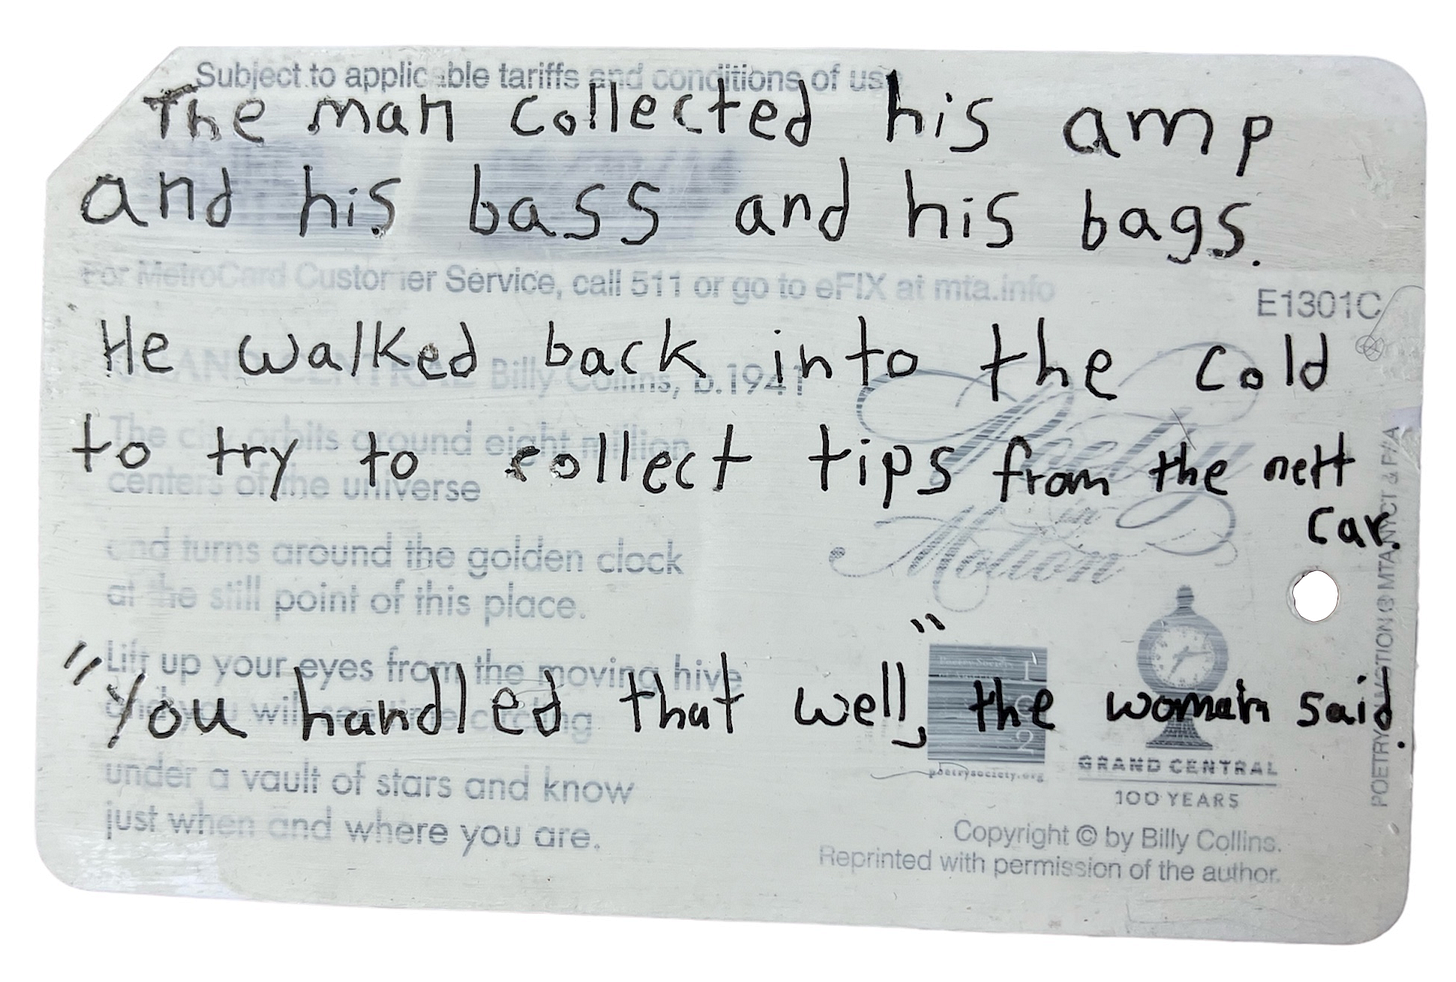 Subject to applicable tariffs and conditions of use
The man collected his amp
and his bass and his bags.
For MetroCard Customer Service, call 511 or go to eFIX at mta.info
E1301C
He walked back into the cold
GRAND CENTRAL Billy Collins, b.1941
The city orbits around eight million
to try to collect tips from the nett
centers of the universe
car.
Poetry
in
Motion
and turns around the golden clock
at the still point of this place.
Lift up your eyes from the moving hive
"You handled that well," the woman said.
and you will see time circling
under a vault of stars and know
just when and where you are.
1
9
2
poetrysociety.org
GRAND CENTRAL
100 YEARS
Copyright © by Billy Collins.
Reprinted with permission of the author.